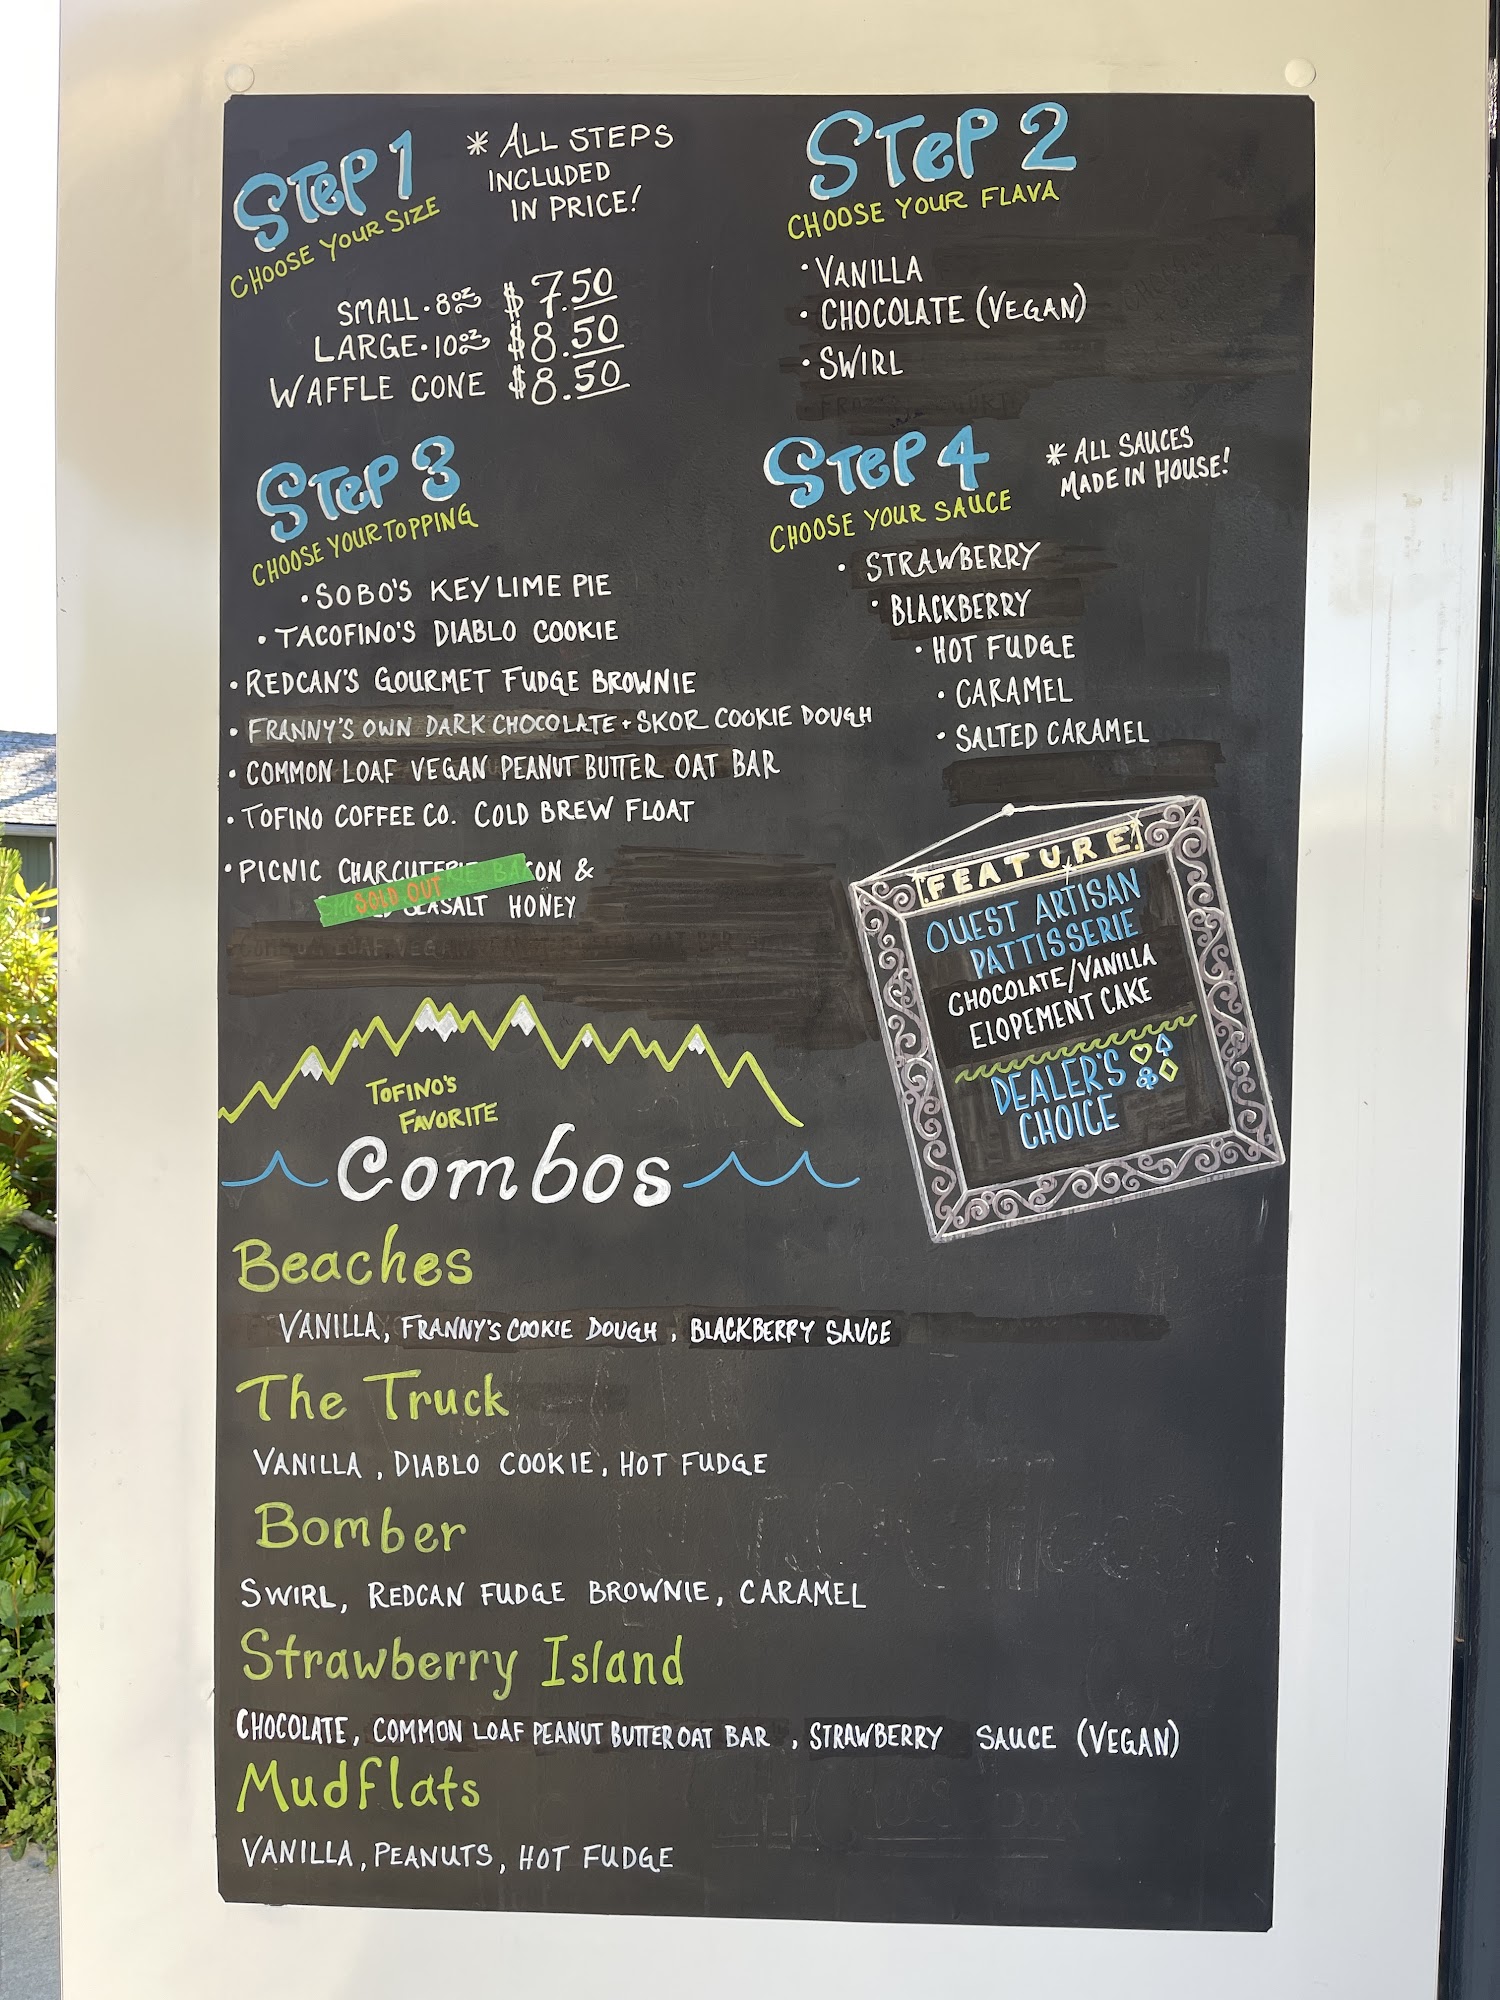 STEP 1
CHOOSE YOUR SIZE
* ALL STEPS
INCLUDED
IN PRICE!
SMALL · 8oz $7.50
LARGE · 10oz $8.50
WAFFLE CONE $8.50
STEP 2
CHOOSE YOUR FLAVA
· VANILLA
· CHOCOLATE (VEGAN)
· SWIRL
STEP 3
CHOOSE YOUR TOPPING
· SOBO'S KEY LIME PIE
· TACOFINO'S DIABLO COOKIE
· REDCAN'S GOURMET FUDGE BROWNIE
· FRANNY'S OWN DARK CHOCOLATE + SKOR COOKIE DOUGH
· COMMON LOAF VEGAN PEANUT BUTTER OAT BAR
· TOFINO COFFEE CO. COLD BREW FLOAT
· PICNIC CHARCUTERIE BACON &
SEASALT HONEY
SOLD OUT
STEP 4
CHOOSE YOUR SAUCE
* ALL SAUCES
MADE IN HOUSE!
· STRAWBERRY
· BLACKBERRY
· HOT FUDGE
· CARAMEL
· SALTED CARAMEL
FEATURE
OUEST ARTISAN
PATTISSERIE
CHOCOLATE/VANILLA
ELOPEMENT CAKE
DEALER'S
CHOICE
TOFINO'S
FAVORITE
Combos
Beaches
VANILLA, FRANNY'S COOKIE DOUGH, BLACKBERRY SAUCE
The Truck
VANILLA, DIABLO COOKIE, HOT FUDGE
Bomber
SWIRL, REDCAN FUDGE BROWNIE, CARAMEL
Strawberry Island
CHOCOLATE, COMMON LOAF PEANUT BUTTER OAT BAR, STRAWBERRY SAUCE (VEGAN)
Mudflats
VANILLA, PEANUTS, HOT FUDGE